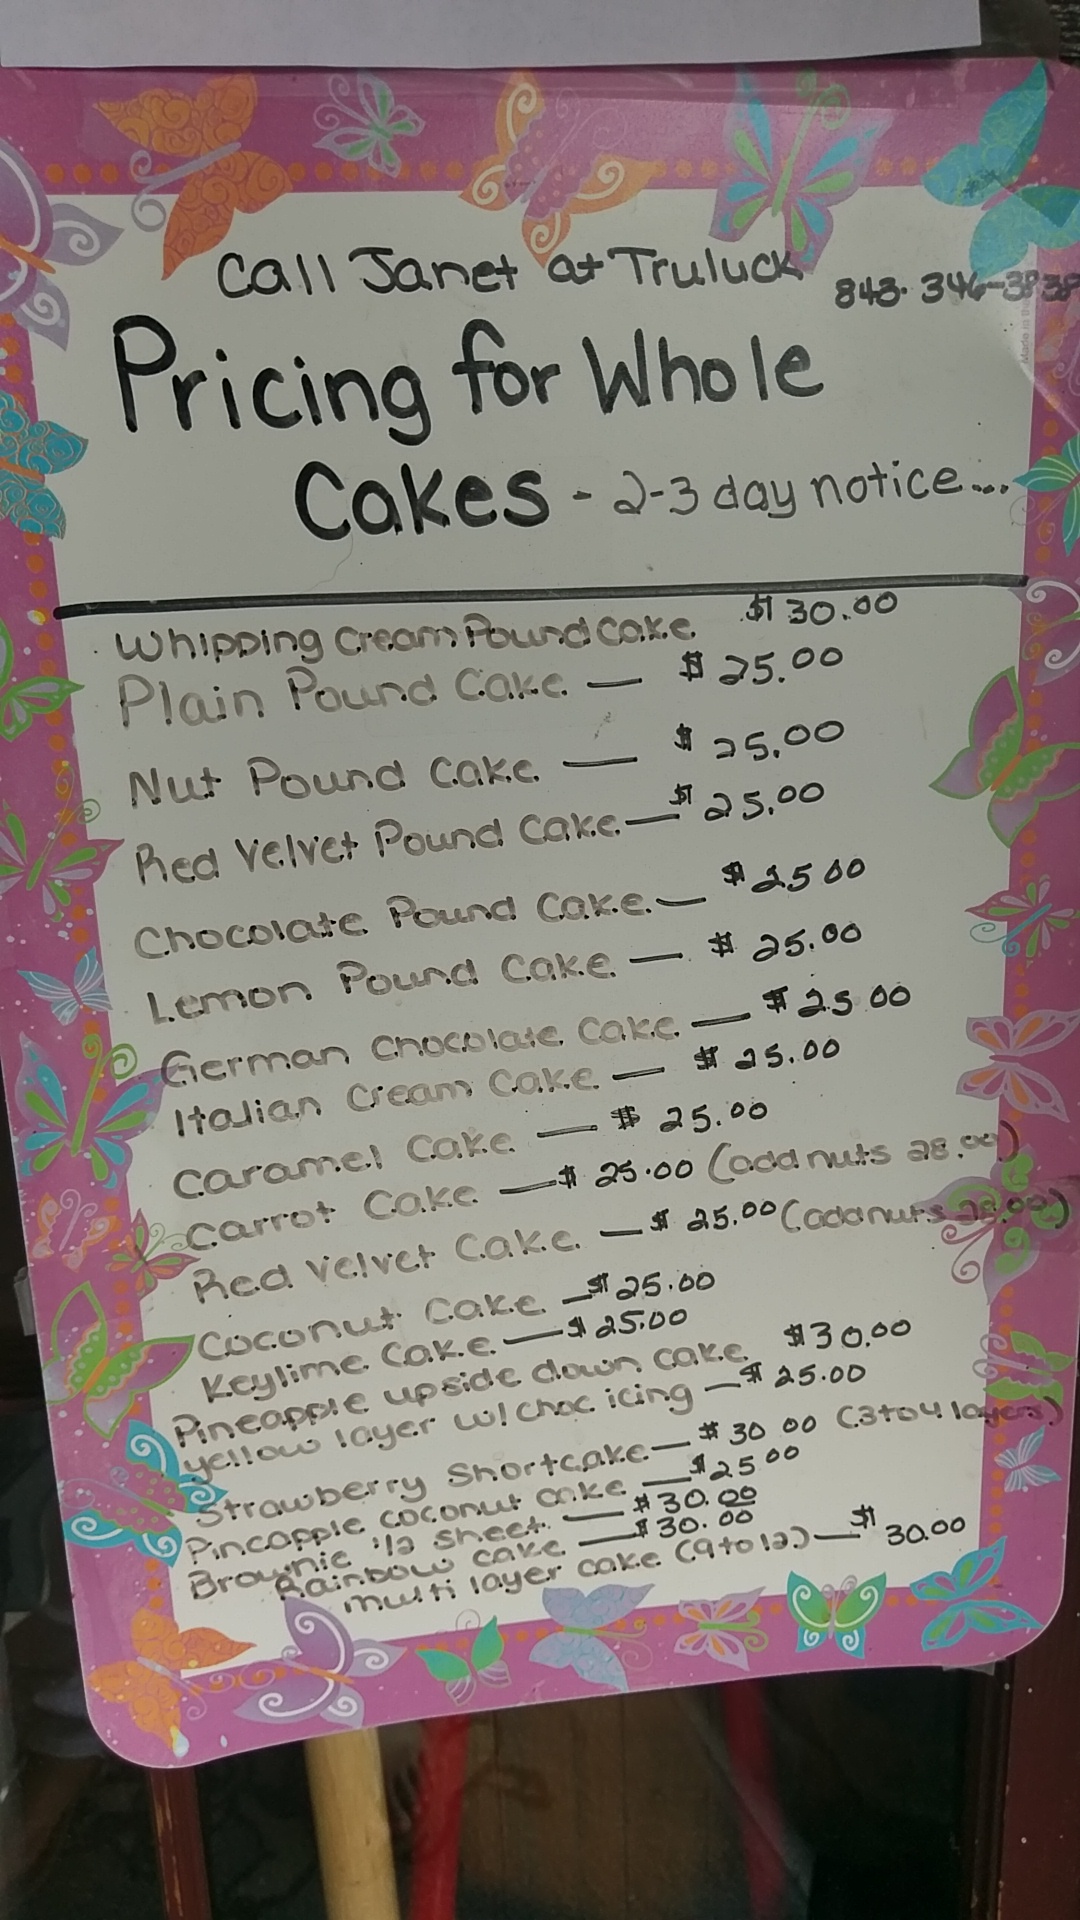 Call Janet at Truluck 843-346-3838
Pricing for Whole
Cakes - 2-3 day notice...
Whipping Cream Pound Cake $30.00
Plain Pound Cake — $25.00
Nut Pound Cake — $25.00
Red Velvet Pound Cake — $25.00
Chocolate Pound Cake — $25.00
Lemon Pound Cake — $25.00
German Chocolate Cake — $25.00
Italian Cream Cake — $25.00
Caramel Cake — $25.00
Carrot Cake — $25.00 (add nuts 28.00)
Red Velvet Cake — $25.00 (add nuts 28.00)
Coconut Cake — $25.00
Keylime Cake — $25.00
Pineapple upside down cake $30.00
yellow layer w/ choc icing — $25.00
Strawberry Shortcake — $30.00 (3 to 4 layers)
Pineapple coconut cake — $25.00
Brownie 1/2 sheet — $30.00
Rainbow cake — $30.00
multi layer cake (9 to 12) — $30.00